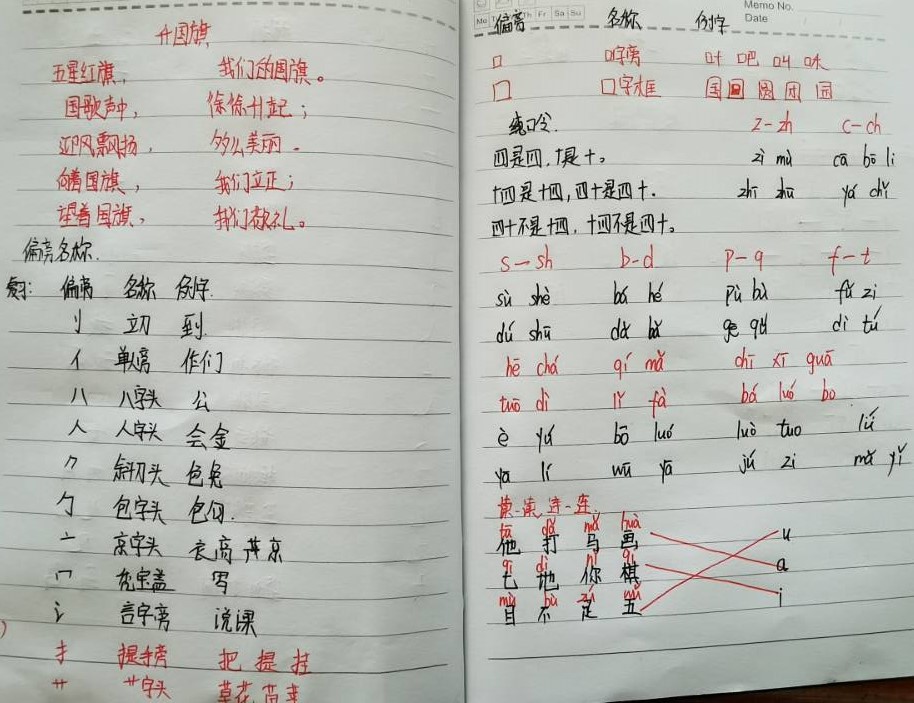 升国旗
五星红旗, 我们的国旗。
国歌声中, 徐徐升起;
迎风飘扬, 多么美丽。
向着国旗, 我们立正;
望着国旗, 我们敬礼。
偏旁名称.
复习: 偏旁 名称 例字.
刂 立刀 到
亻 单人旁 作们
八 八字头 公
人 人字头 会金
⺈ 斜刀头 色兔
勹 包字头 包勾.
亠 京字头 衣高 京
冖 秃宝盖 写
讠 言字旁 说课
扌 提手旁 把 提 挂
艹 艹字头 草花
Memo No.
Date
Mo Th Fr Sa Su
偏旁 名称 例字
口 口字旁 叶 吧 叫 味
囗 囗字框 国 圆 团 园
绕口令. z-zh c-ch
四是四,十是十。 zì mù cā bō li
十四是十四,四十是四十. zhī zhū yá chǐ
四十不是十四,十四不是四十。
s-sh b-d p-q f-t
sù shè bá hé pù bù fú zi
dú shū dǎ bǎ gē qǔ dì tú
hē chá qí mǎ chī xī guā
tuō dì lǐ fà bá luó bo
è yú bō luó luò tuo lú
yā lí wū yā jú zi mǎ yǐ
读一读 连一连.
tā dǎ mǎ huà
他 打 马 画 u
qī dì nǐ qí
七 地 你 棋 a
mù bù zú wǔ i
目 不 足 五